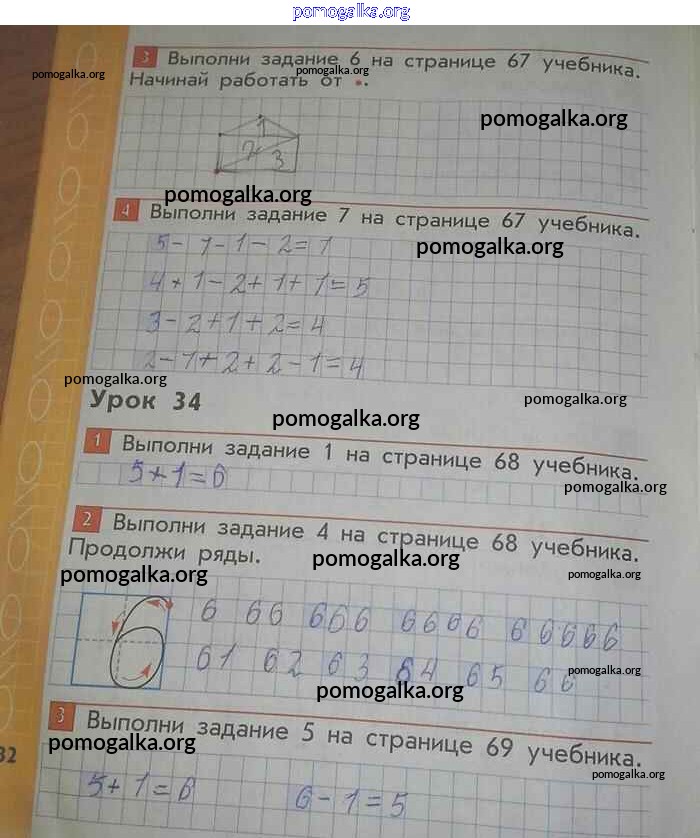 pomogalka.org
3 Выполни задание 6 на странице 67 учебника.
pomogalka.org pomogalka.org
Начинай работать от •.
pomogalka.org
1
2
3
pomogalka.org
4 Выполни задание 7 на странице 67 учебника.
5-1-1-2=1
pomogalka.org
4+1-2+1+1=5
3-2+1+2=4
2-1+2+2-1=4
pomogalka.org
Урок 34
pomogalka.org
pomogalka.org
1 Выполни задание 1 на странице 68 учебника.
5+1=6
pomogalka.org
2 Выполни задание 4 на странице 68 учебника.
Продолжи ряды.
pomogalka.org
pomogalka.org
pomogalka.org
6 66 666 6666 66666
61 62 63 64 65 66
pomogalka.org
pomogalka.org
3 Выполни задание 5 на странице 69 учебника.
pomogalka.org
32
pomogalka.org
5+1=6 6-1=5